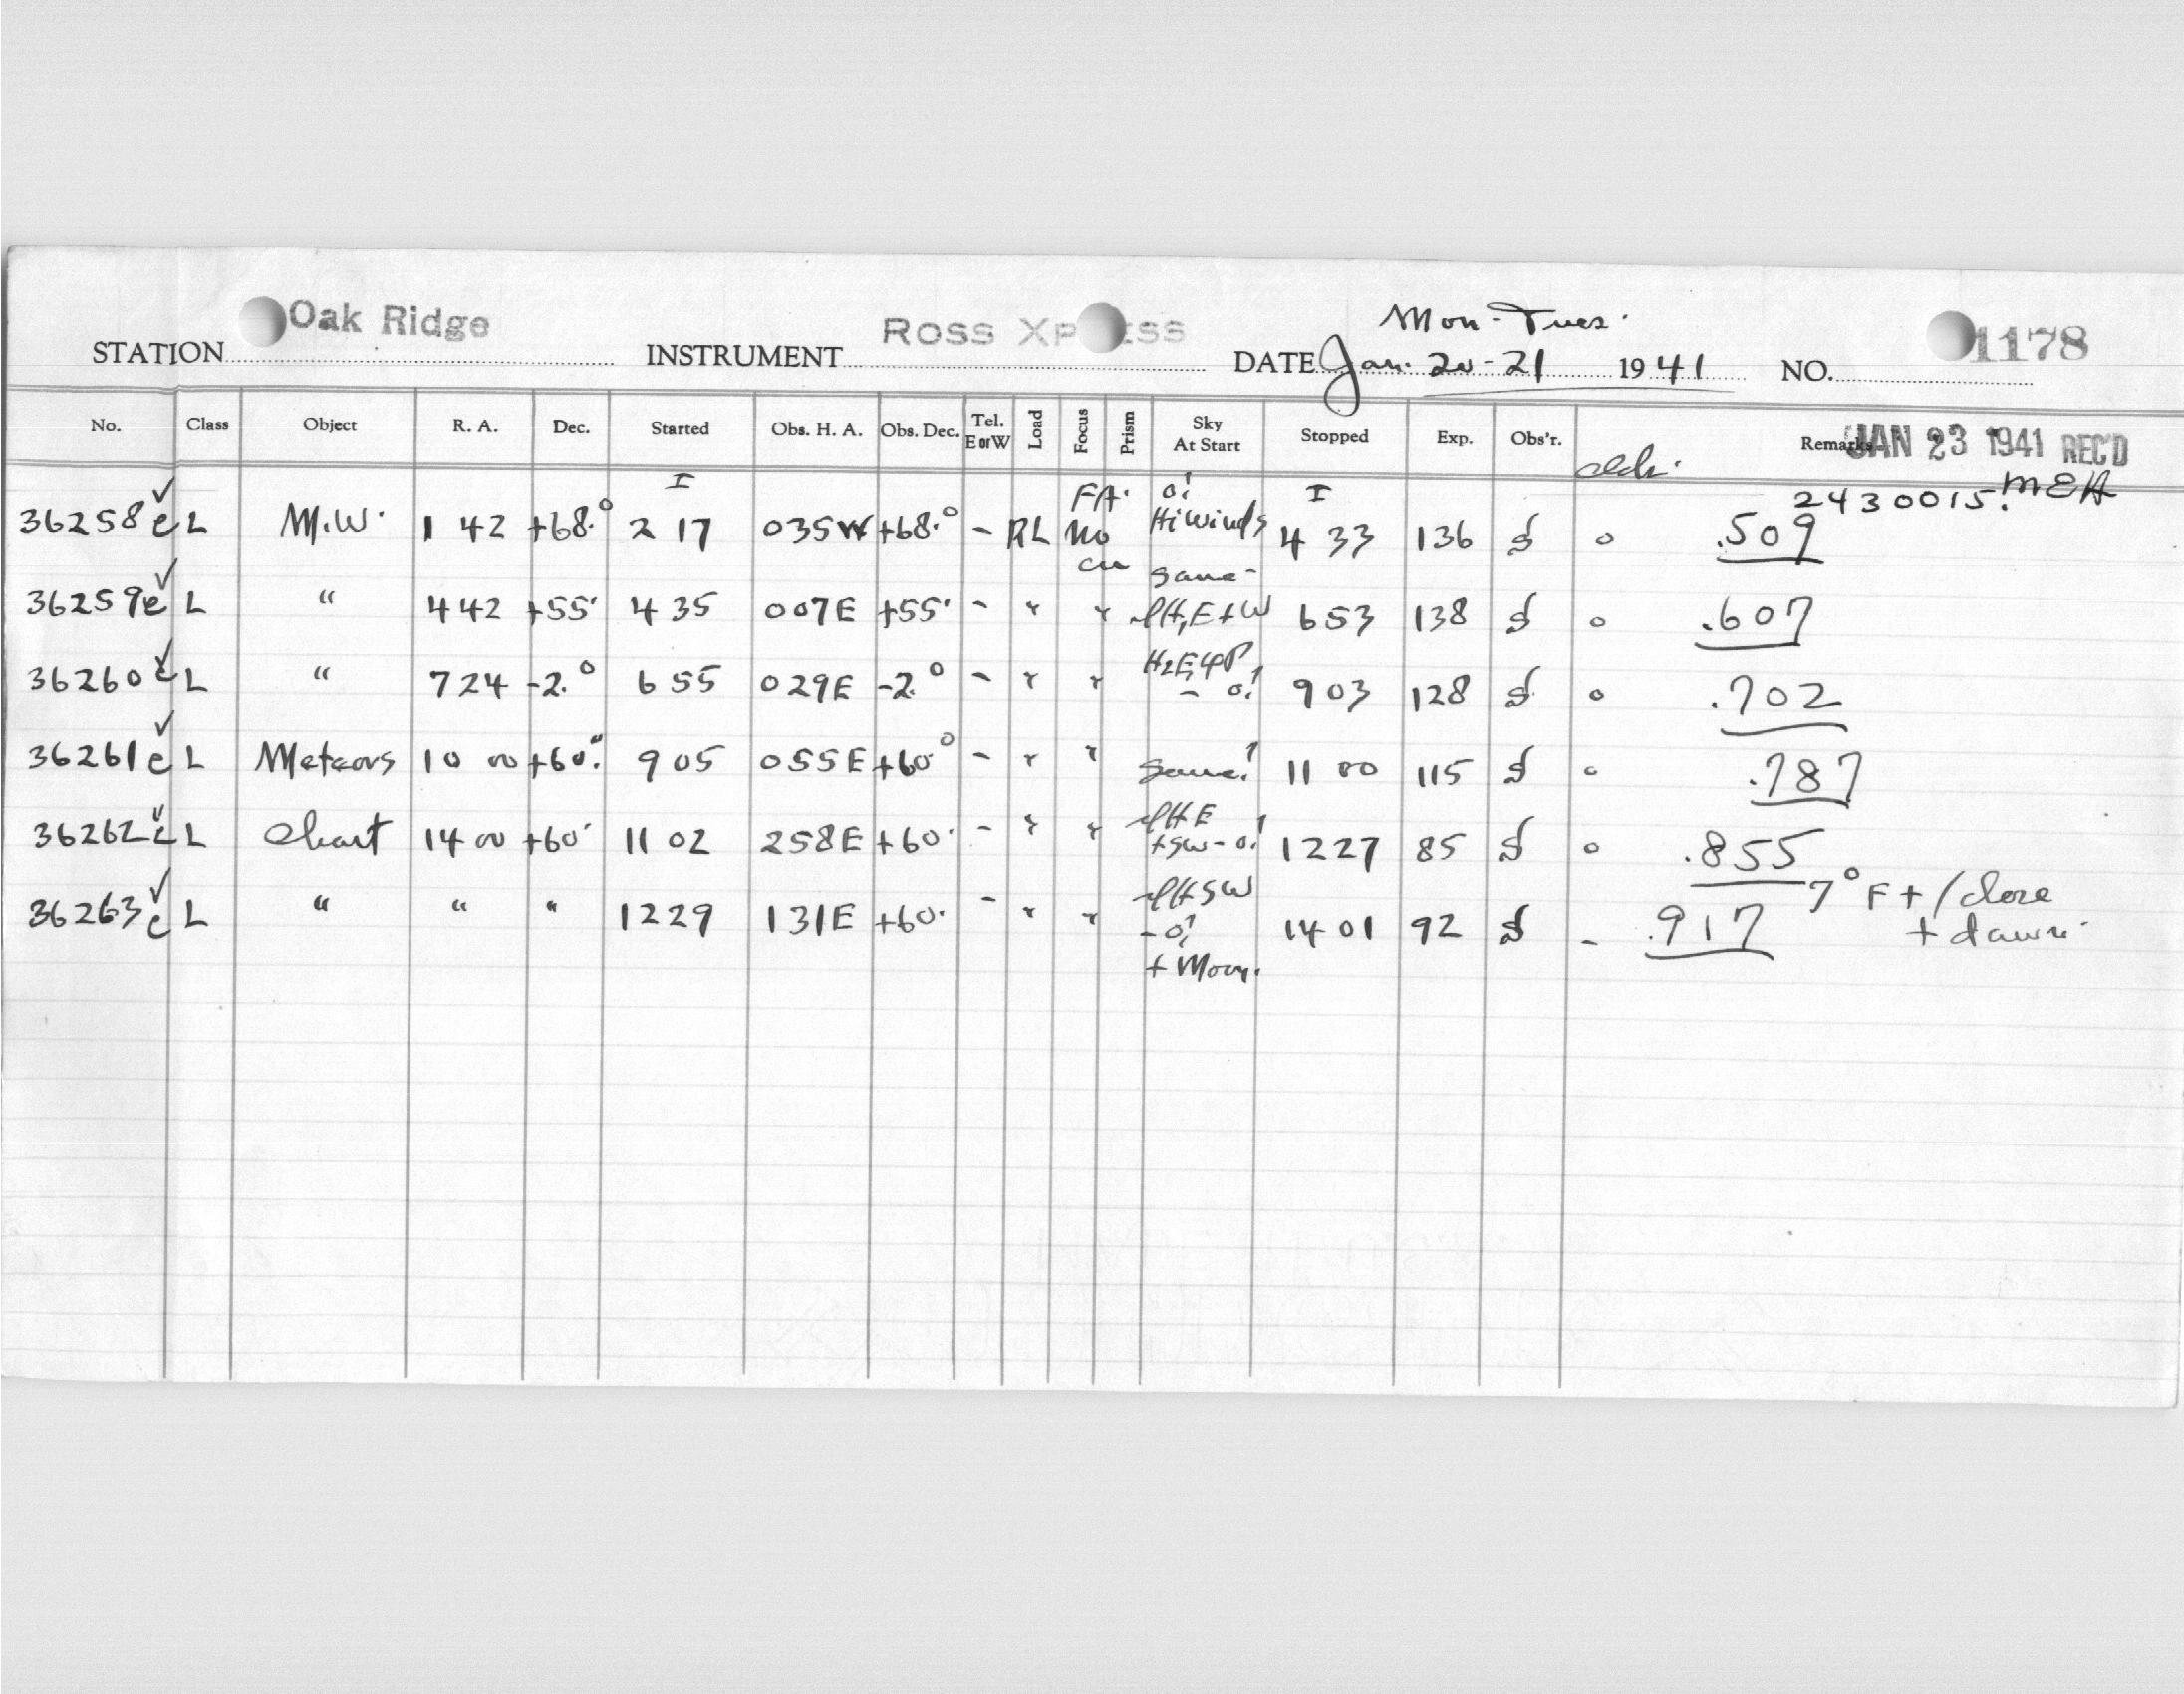 Oak Ridge Ross Mon-Tues. 1178
STATION INSTRUMENT DATE Jan. 20-21 1941 NO.
No. Class Object R. A. Dec. Started Obs. H. A. Obs. Dec. Tel. E or W Load Focus Prism Sky At Start Stopped Exp. Obs'r. Remarks JAN 23 1941 REC'D
I FA. I 2430015. MEH
36258 L M.W. 1 42 +68.° 2 17 035W +68.° - RL No Hi Winds 4 33 136 o .509
same-
36259 L " 4 42 +55 4 35 007E +55 - " " H, E+W 6 53 138 o .607
36260 L " 7 24 -2.° 6 55 029E -2.° - " " 9 03 128 o .702
36261 L Meteors 10 00 +60. 9 05 055E +60° - " " Same! 11 00 115 o .787
36262 L Chart 14 00 +60 11 02 258E +60 - " " H E +SW-o! 12 27 85 o .855
36263 L " " " 12 29 131E +60. - " " H SW - o! + Moon. 14 01 92 - .917 7° F + / close
+ dawn